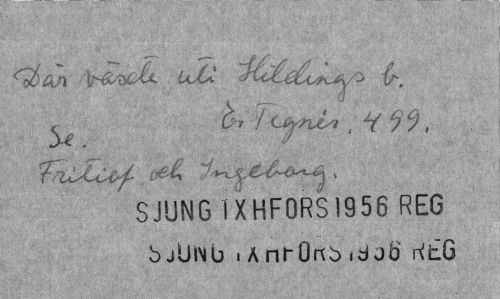 Där växte uti Hildings b.
Es Tegnér. 499.
Se.
Fritiof och Ingeborg.
SJUNG IXHFORS1956 REG
SJUNG IXHFORS1956 REG